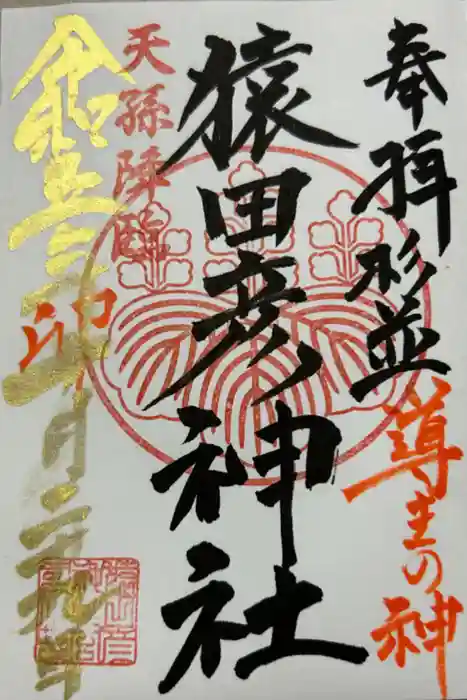 奉拝 杉並
導きの神
猿田彦神社
天孫降臨
卯
令和五年